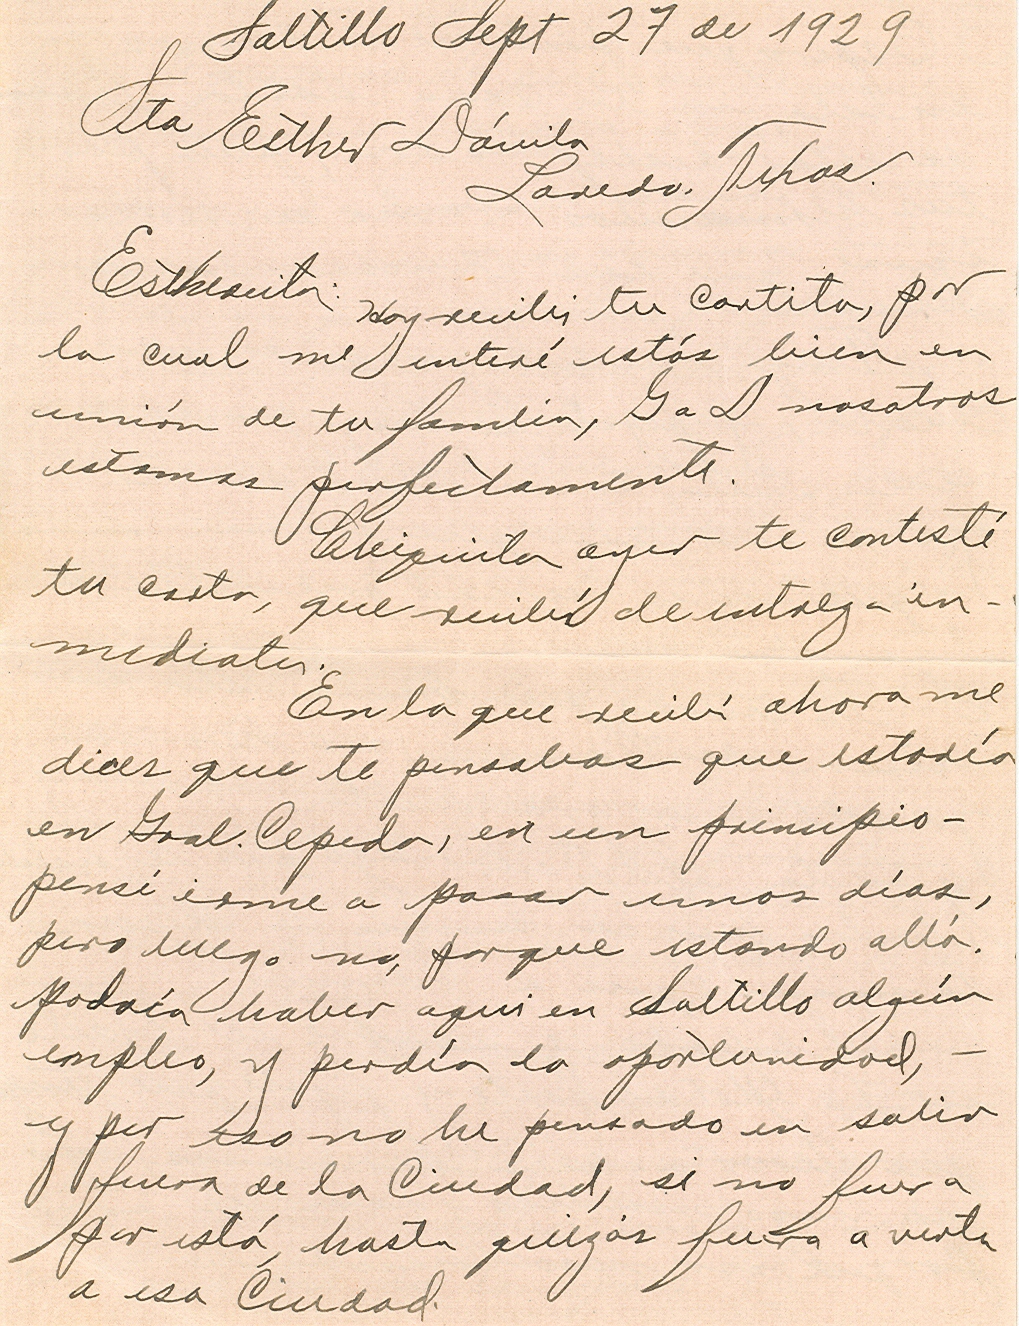 Saltillo Sept 27 de 1929
Sta Esther Dávila
Laredo. Texas.
Esthercita:
Hoy recibí tu cartita, por
la cual me enteré estás bien en
unión de tu familia, G a D nosotros
estamos perfectamente.
Chiquita ayer te contesté
tu carta, que recibí de entrega in-
mediata.
En la que recibí ahora me
dices que te pensabas que estaría
en Gral. Cepeda, en un principio-
pensé irme a pasar unos días,
pero luego no, porque estando allá.
podría haber aqui en Saltillo algún
empleo, y perdía la oportunidad, -
y por eso no he pensado en salir
fuera de la Ciudad, si no fuera
por está, hasta quizás fuera a verte
a esa Ciudad.